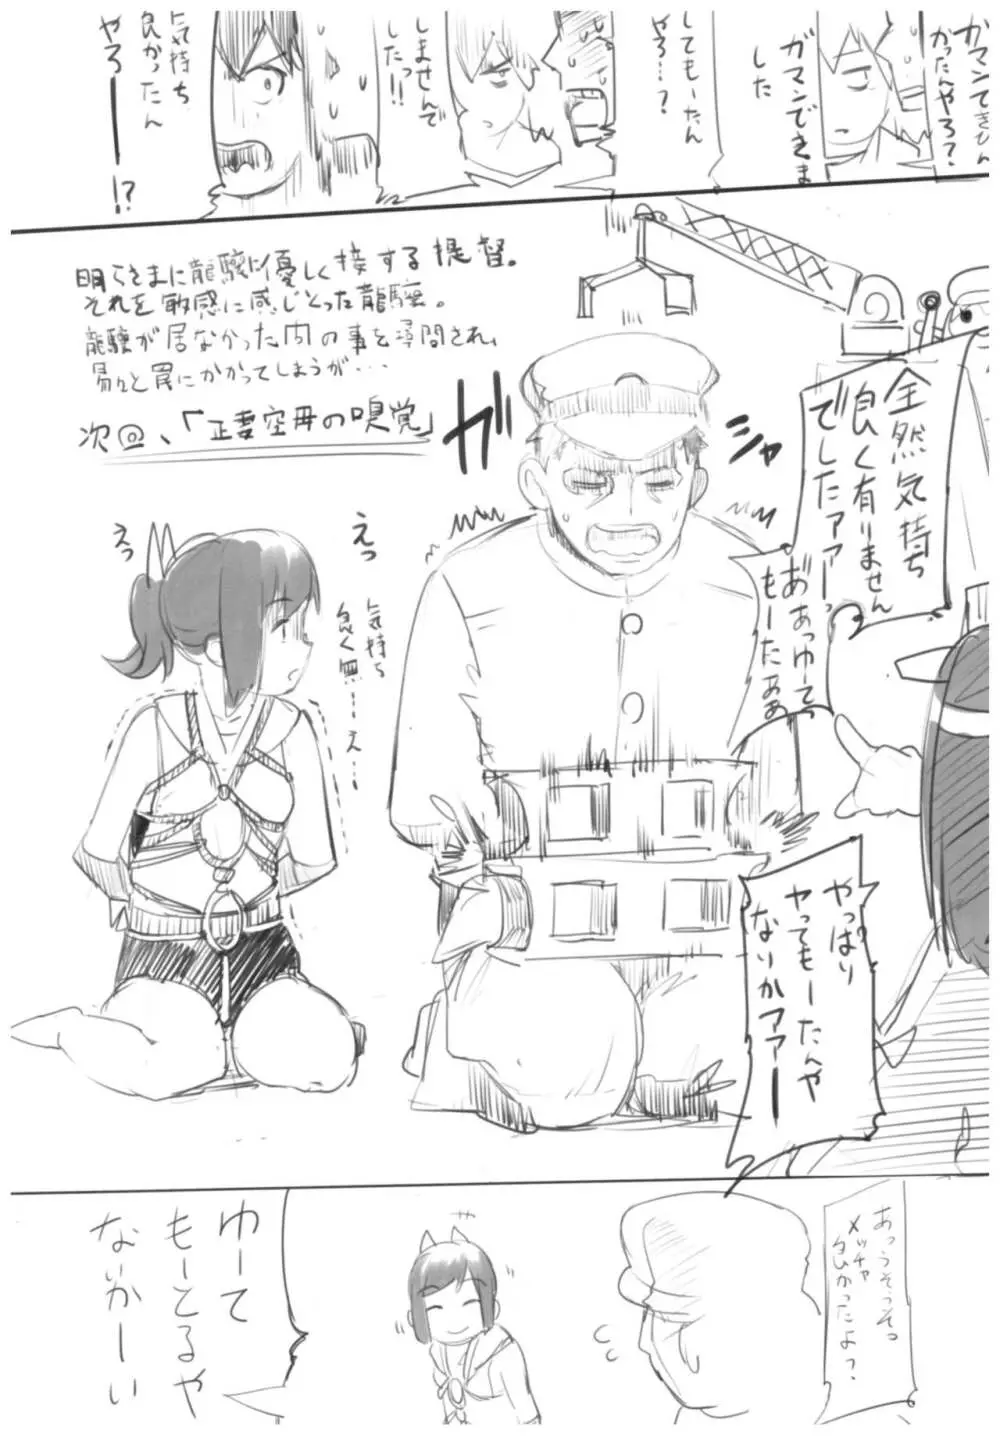 ガマンできひん
かったんやろ?
ガマンできま
した
してもーたん
やろ…?
しませんで
したっ!!
気持ち
良かったん
やろーー!?
明らさまに龍驤に優しく接する提督。
それを敏感に感じとった龍驤。
龍驤が居なかった内の事を尋問され、
易々と罠にかかってしまうが・・・
次回、「正妻空母の嗅覚」
ガ
シャ
全然気持ち
良く有りません
でしたァァーっ
あ゛あっゆて
もーたぁぁ
やっぱり
ヤってもーたんや
ないかァァーー
えっ
えっ
気持ち
良く無…え…
あっうそうそっ
メッチャ
良かったよ?
ゆーて
もーとるや
ないかーい